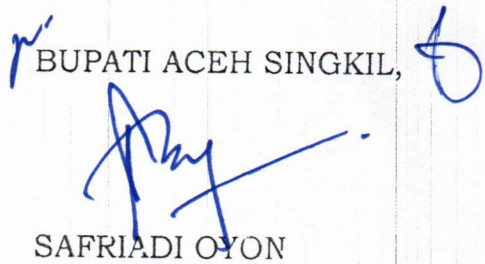 BUPATI ACEH SINGKIL,
SAFRIADI OYON